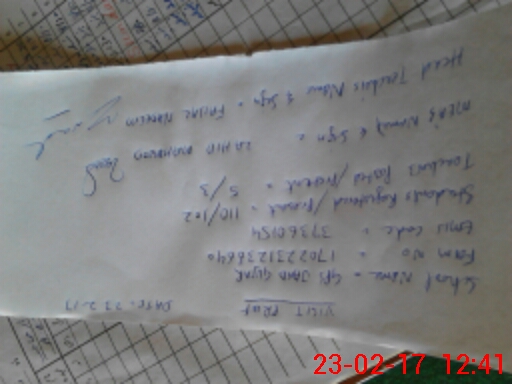 VISIT PROOF
DATE: 23.2.17
School Name = GPS JAND GUJAR
Form No = 17022312364
Emis code = 37360154
Students Registered / Present = 110/102
Teachers Posted / Present = 5/3
MEA's Name & Sign = ZAHID MAHMOOD
Head Teacher's Name & Sign = FAISAL NADEEM
23-02-17 12:41